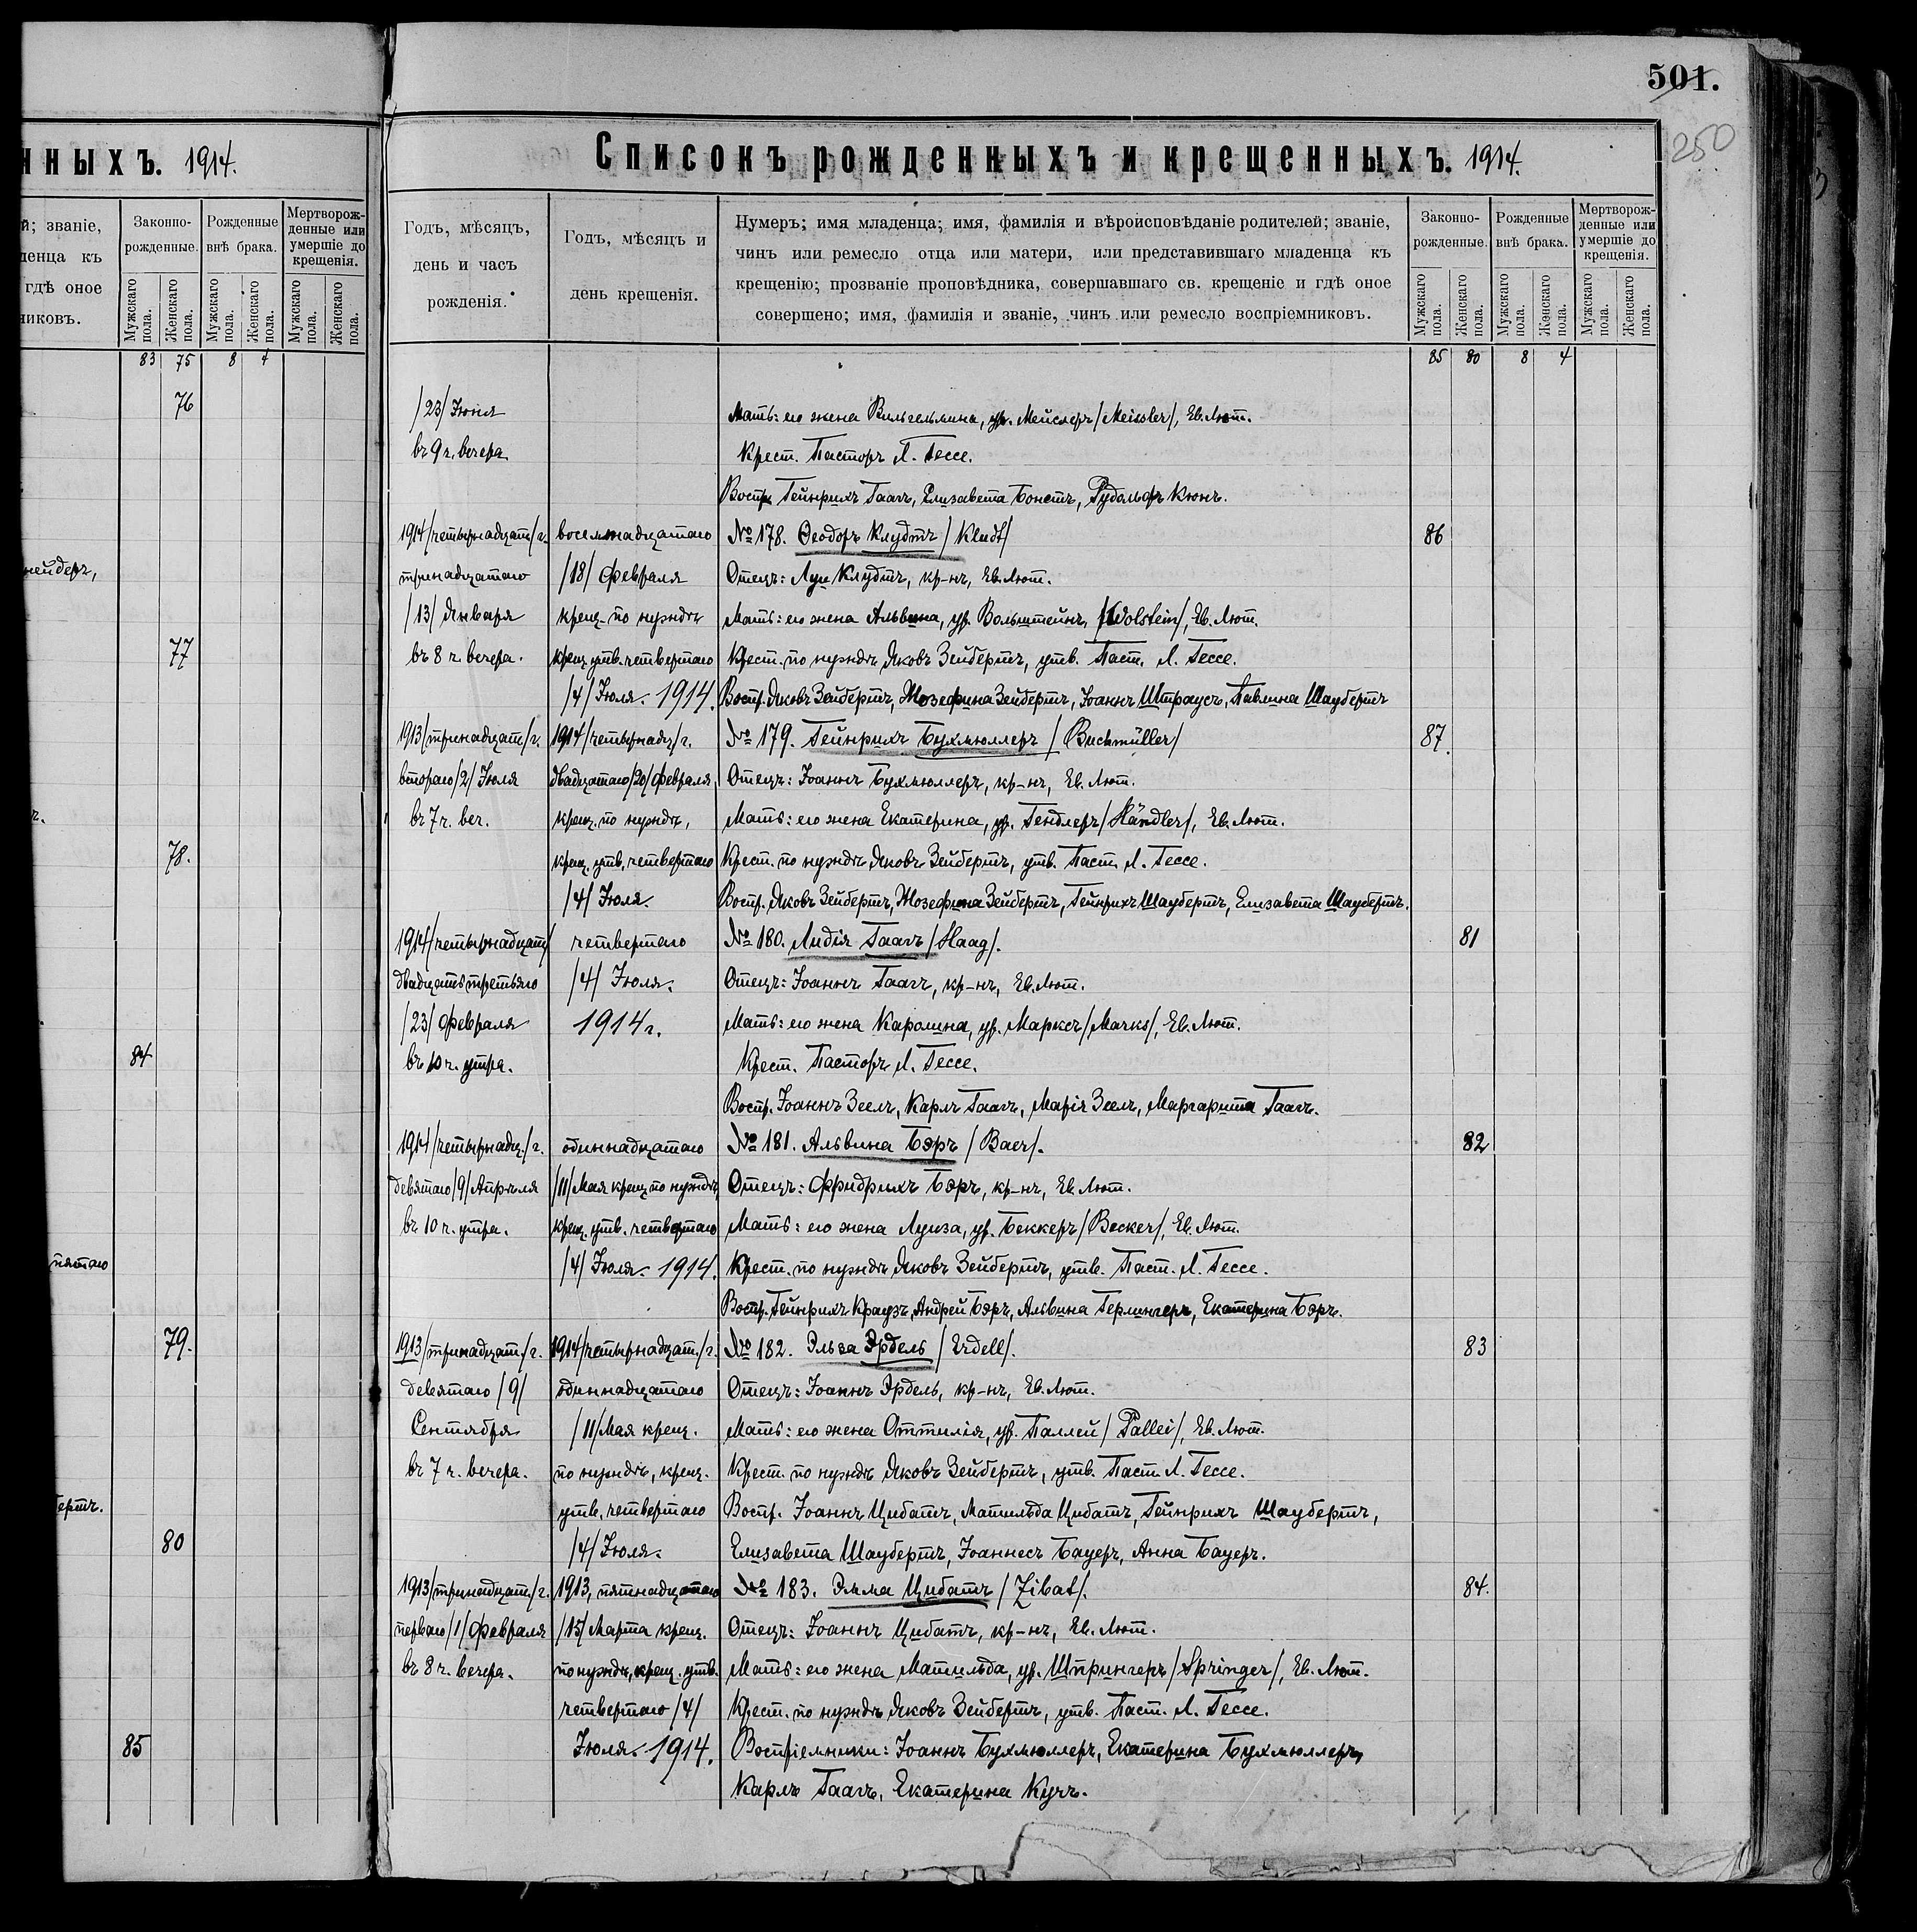 501.
250
нныхъ. 1914.
й; званіе,
денца къ
гдѣ оное
никовъ.
Законно-
рожденные.
Рожденные
внѣ брака.
Мертворож-
денные или
умершіе до
крещенія.
Мужскаго пола.
Женскаго пола.
Мужскаго пола.
Женскаго пола.
Мужскаго пола.
Женскаго пола.
83 75 8 4
76
нейдеръ,
77
78.
84
пятаго
79.
бертъ.
80
85
Списокъ рожденныхъ и крещенныхъ. 1914.
Годъ, мѣсяцъ,
день и часъ
рожденія.
Годъ, мѣсяцъ и
день крещенія.
Нумеръ; имя младенца; имя, фамилія и вѣроисповѣданіе родителей; званіе,
чинъ или ремесло отца или матери, или представившаго младенца къ
крещенію; прозваніе проповѣдника, совершавшаго св. крещеніе и гдѣ оное
совершено; имя, фамилія и званіе, чинъ или ремесло воспріемниковъ.
Законно-
рожденные.
Рожденные
внѣ брака.
Мертворож-
денные или
умершіе до
крещенія.
Мужскаго пола.
Женскаго пола.
Мужскаго пола.
Женскаго пола.
Мужскаго пола.
Женскаго пола.
85 80 8 4
/23/ Іюня Мать: его жена Вильгельмина, ур. Мейслеръ /Meissler/, Ев. Лют.
въ 9 ч. вечера Крест. Пасторъ Л. Гессе.
Воспр. Гейнрихъ Гаагъ, Елизавета Бонетъ, Рудольфъ Кюнъ.
1914/четырнадцат/г. восемнадцатаго № 178. Ѳеодоръ Клудтъ /Kludt/ 86
тринадцатаго /18/ Февраля Отецъ: Луи Клудтъ, кр-нъ, Ев. Лют.
/13/ Января крещ. по нуждѣ Мать: его жена Альвина, ур. Вольштейнъ, /Wolstein/, Ев. Лют.
въ 8 ч. вечера. крещ. утв. четвертаго Крест. по нуждѣ Яковъ Зейбертъ, утв. Паст. Л. Гессе.
/4/ Іюля. 1914. Воспр. Яковъ Зейбертъ, Жозефина Зейбертъ, Іоаннъ Штраусъ, Павлина Шаубертъ
1913/тринадцат/г. 1914/четырнадц/г. № 179. Гейнрихъ Бухмюллеръ /Buchmüller/ 87.
втораго /2/ Іюля двадцатаго /20/ Февраля Отецъ: Іоаннъ Бухмюллеръ, кр-нъ, Ев. Лют.
въ 7 ч. веч. крещ. по нуждѣ, Мать: его жена Екатерина, ур. Гендлеръ /Händler/, Ев. Лют.
крещ. утв. четвертаго Крест. по нуждѣ Яковъ Зейбертъ, утв. Паст. Л. Гессе.
/4/ Іюля. Воспр. Яковъ Зейбертъ, Жозефина Зейбертъ, Гейнрихъ Шаубертъ, Елизавета Шаубертъ.
1914/четырнадцат/ четвертаго № 180. Лидія Гаагъ /Haag/. 81
двадцать третьяго /4/ Іюля. Отецъ: Іоаннъ Гаагъ, кр-нъ, Ев. Лют.
/23/ Февраля 1914 г. Мать: его жена Каролина, ур. Марксъ /Marks/, Ев. Лют.
въ 10 ч. утра. Крест. Пасторъ Л. Гессе.
Воспр. Іоаннъ Зеелъ, Карлъ Гаагъ, Марія Зеелъ, Маргарита Гаагъ.
1914/четырнадц./г. одиннадцатаго № 181. Альвина Бэръ /Baer/. 82
девятаго /9/ Апрѣля /11/ Мая крещ по нуждѣ Отецъ: Фридрихъ Бэръ, кр-нъ, Ев. Лют.
въ 10 ч. утра. крещ. утв. четвертаго Мать: его жена Луиза, ур. Беккеръ /Becker/, Ев. Лют.
/4/ Іюля. 1914. Крест. по нуждѣ Яковъ Зейбертъ, утв. Паст. Л. Гессе.
Воспр. Гейнрихъ Краузъ, Андрей Бэръ, Альвина Герлингеръ, Екатерина Бэръ.
1913/тринадцат./г. 1914/четырнадцат./г. № 182. Эльза Эрдель /Erdell/. 83
девятаго /9/ одиннадцатаго Отецъ: Іоаннъ Эрдель, кр-нъ, Ев. Лют.
Сентября /11/ Мая крещ. Мать: его жена Оттилія, ур. Паллей /Pallei/, Ев. Лют.
въ 7 ч. вечера. по нуждѣ, крещ. Крест. по нуждѣ Яковъ Зейбертъ, утв. Паст. Л. Гессе.
утв. четвертаго Воспр. Іоаннъ Цибатъ, Матильда Цибатъ, Гейнрихъ Шаубертъ,
/4/ Іюля. Елизавета Шаубертъ, Іоаннесъ Бауеръ, Анна Бауеръ.
1913/тринадцат./г. 1913, пятнадцатаго № 183. Эмма Цибатъ /Zibat/. 84.
перваго /1/ Февраля /15/ Марта крещ. Отецъ: Іоаннъ Цибатъ, кр-нъ, Ев. Лют.
въ 8 ч. вечера. по нуждѣ, крещ. утв. Мать: его жена Матильда, ур. Шпрингеръ /Springer/, Ев. Лют.
четвертаго /4/ Крест. по нуждѣ Яковъ Зейбертъ, утв. Паст. Л. Гессе.
Іюля. 1914. Воспріемники: Іоаннъ Бухмюллеръ, Екатерина Бухмюллеръ,
Карлъ Гаагъ, Екатерина Кучъ.